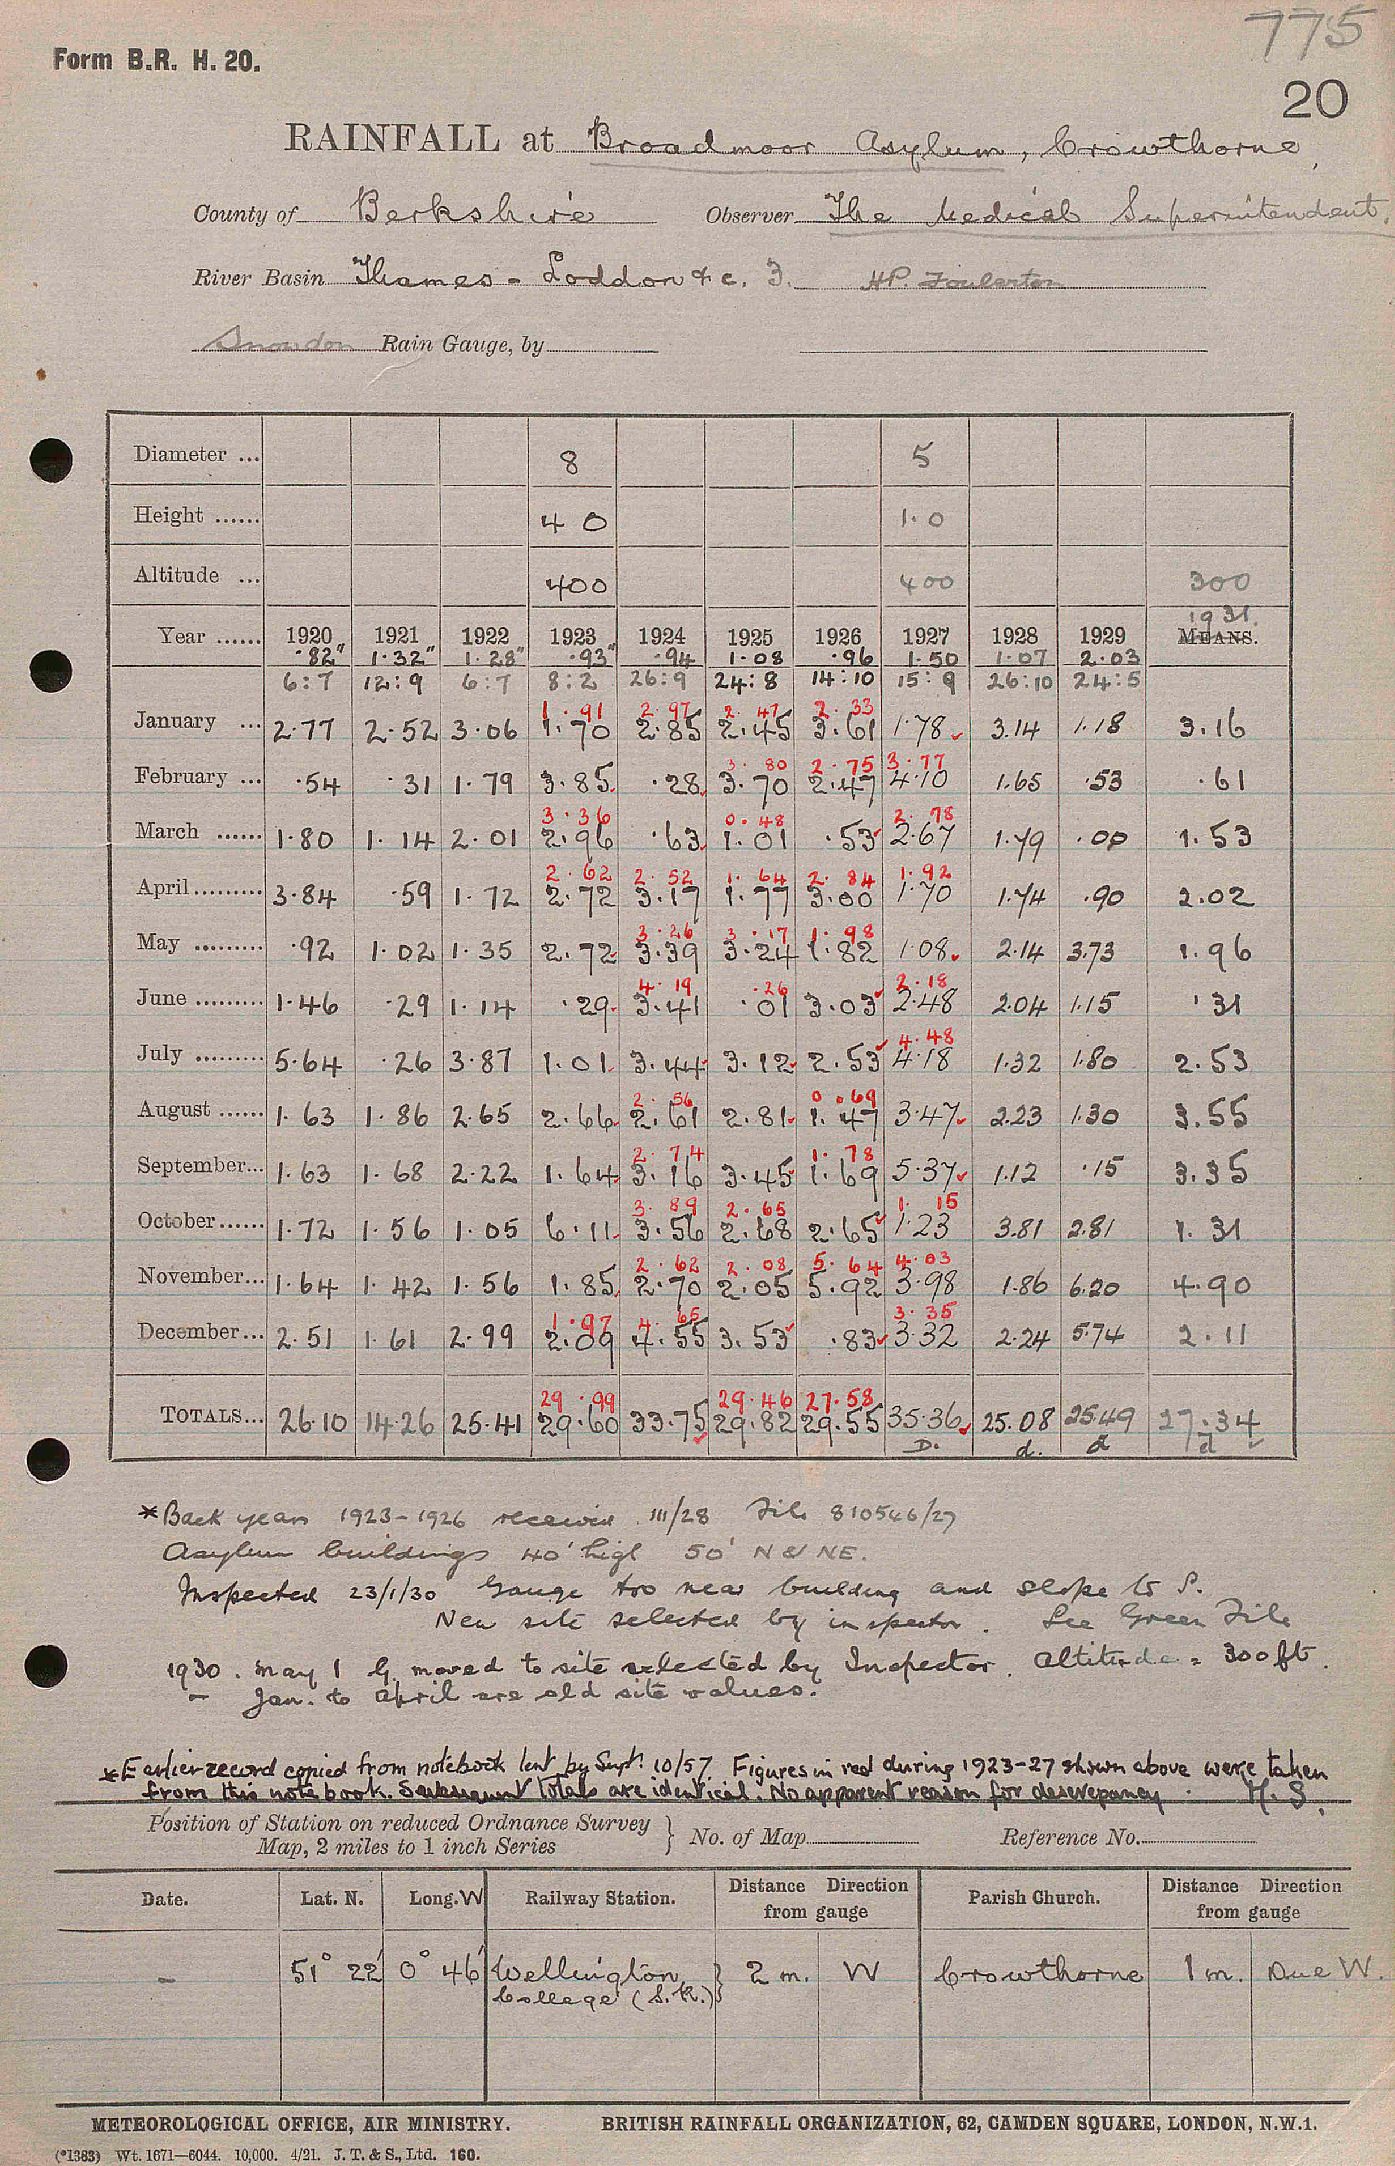 775
Form B.R. H. 20.
20
RAINFALL at Broadmoor Asylum, Crowthorne,
County of Berkshire Observer The Medical Superintendent.
River Basin Thames - Loddon & c. 3. H.P. Foulerton
Snowdon Rain Gauge, by
Diameter ... 8 5
Height ...... 4 0 1.0
Altitude ... 400 400 300
1931.
Year ...... 1920 1921 1922 1923 1924 1925 1926 1927 1928 1929 MEANS.
.82" 1.32" 1.28" .93" .94 1.08 .96 1.50 1.07 2.03
6:7 12:9 6:7 8:2 26:9 24:8 14:10 15:9 26:10 24:5
1.91 2.97 2.47 2.33
January ... 2.77 2.52 3.06 1.70 2.85 2.45 3.61 1.78 3.14 1.18 3.16
3.80 2.75 3.77
February ... .54 .31 1.79 3.85 .28 3.70 2.47 4.10 1.65 .53 .61
3.36 0.48 2.78
March ...... 1.80 1.14 2.01 2.96 .63 1.01 .53 2.67 1.79 .00 1.53
2.62 2.52 1.64 2.84 1.92
April ......... 3.84 .59 1.72 2.72 3.17 1.77 3.00 1.70 1.74 .90 2.02
3.26 3.17 1.98
May ......... .92 1.02 1.35 2.72 3.39 3.24 1.82 1.08 2.14 3.73 1.96
4.19 .26 2.18
June ......... 1.46 .29 1.14 .29 3.41 .01 3.03 2.48 2.04 1.15 .31
4.48
July ......... 5.64 .26 3.87 1.01 3.44 3.12 2.53 4.18 1.32 1.80 2.53
2.56 0.69
August ...... 1.63 1.86 2.65 2.66 2.61 2.81 1.47 3.47 2.23 1.30 3.55
2.74 1.78
September... 1.63 1.68 2.22 1.64 3.16 3.45 1.69 5.37 1.12 .15 3.35
3.89 2.65 1.15
October...... 1.72 1.56 1.05 6.11 3.56 2.68 2.65 1.23 3.81 2.81 1.31
2.62 2.08 5.64 4.03
November... 1.64 1.42 1.56 1.85 2.70 2.05 5.92 3.98 1.86 6.20 4.90
1.97 4.65 3.35
December... 2.51 1.61 2.99 2.09 4.55 3.53 .83 3.32 2.24 5.74 2.11
29.99 29.46 27.58
TOTALS... 26.10 14.26 25.41 29.60 33.75 29.82 29.55 35.36 25.08 25.49 27.34
D. d. d d
*Back years 1923-1926 received III/28 File 810546/27
Asylum buildings 40' high 50' N & NE.
Inspected 23/1/30 Gauge too near building and slope to S.
New site selected by inspector. See Green File
1930. May 1 G. moved to site selected by Inspector. Altitude = 300 ft.
- Jan. to April are old site values.
*Earlier record copied from notebook lent by Supt. 10/57. Figures in red during 1923-27 shown above were taken
from this notebook. Subsequent totals are identical. No apparent reason for descrepancy. H.S.
Position of Station on reduced Ordnance Survey
Map, 2 miles to 1 inch Series } No. of Map Reference No.
Date. Lat. N. Long. W Railway Station. Distance from gauge Direction Parish Church. Distance from gauge Direction
- 51° 22' 0° 46' Wellington College (S.R.) } 2 m. W Crowthorne 1 m. Due W.
METEOROLOGICAL OFFICE, AIR MINISTRY. BRITISH RAINFALL ORGANIZATION, 62, CAMDEN SQUARE, LONDON, N.W.1.
(*1383) Wt. 1671—6044. 10,000. 4/21. J. T. & S., Ltd. 160.